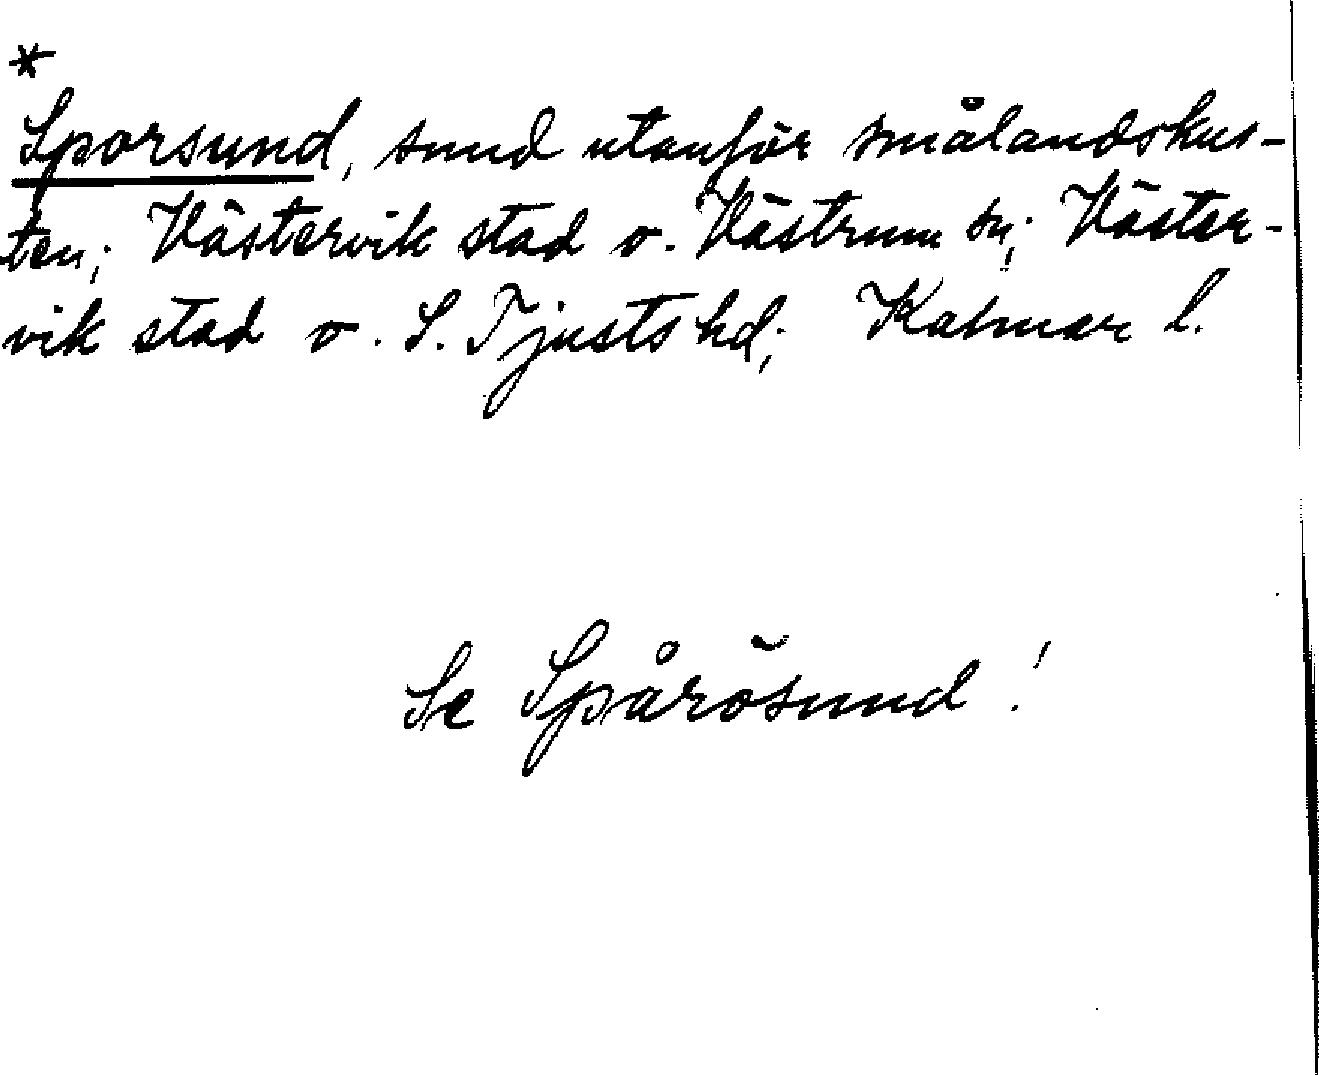 *
Sporsund, sund utanför smålandskus-
ten; Västervik stad o. Västrum sn; Väster-
vik stad o. S. Tjusts hd; Kalmar l.
Se Spårösund!